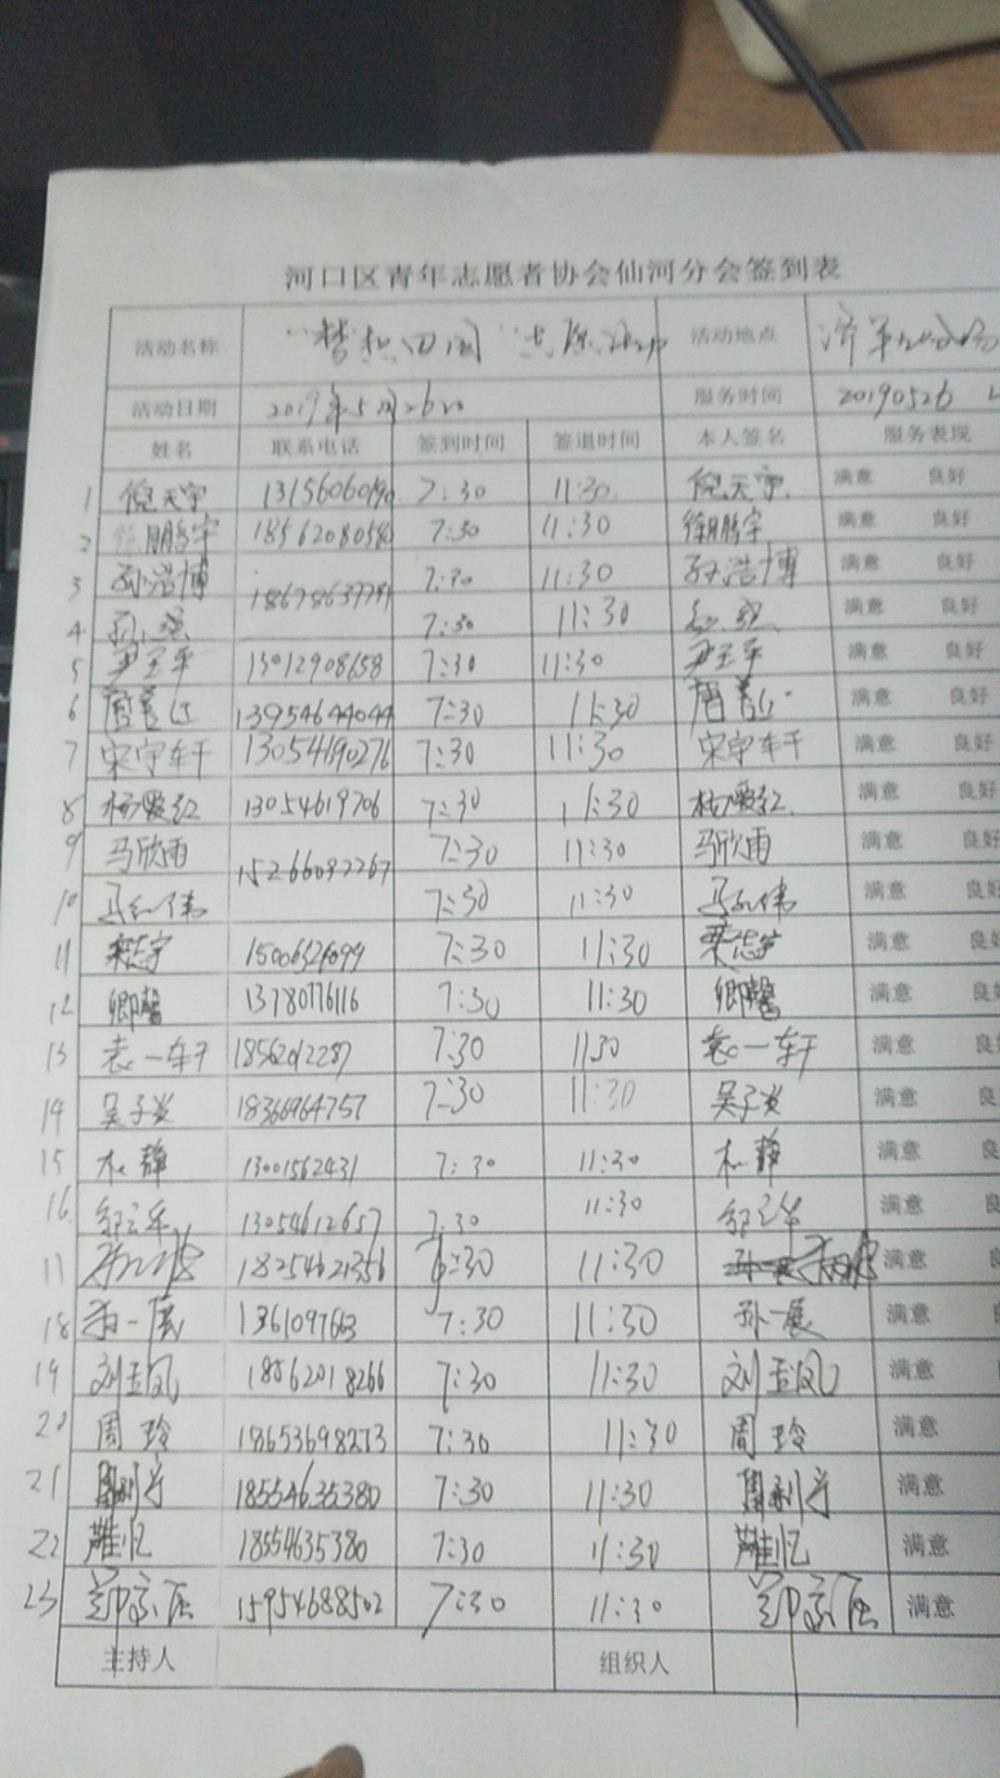 河口区青年志愿者协会仙河分会签到表
活动名称 "梦想田园"志愿活动 活动地点 济军
活动日期 2019年5月26日 服务时间 20190526
姓名 联系电话 签到时间 签退时间 本人签名 服务表现
1 倪天宇 13156060190 7:30 11:30 倪天宇 满意 良好
2 徐鹏宇 18562080580 7:30 11:30 徐鹏宇 满意 良好
3 孙浩博 18678637791 7:30 11:30 孙浩博 满意 良好
4 7:30 11:30 满意 良好
5 尹玉平 13012908658 7:30 11:30 尹玉平 满意 良好
6 13954644044 7:30 11:30 满意 良好
7 宋宇轩 13054190276 7:30 11:30 宋宇轩 满意 良好
8 杨爱红 13054619706 7:30 11:30 杨爱红 满意 良好
9 马欣雨 15266092267 7:30 11:30 马欣雨 满意 良好
10 马红伟 7:30 11:30 马红伟 满意 良好
11 栾志宇 7:30 11:30 栾志宇 满意
12 卿馨 13780776116 7:30 11:30 卿馨 满意
13 袁一轩 18562012287 7:30 11:30 袁一轩 满意
14 吴子炎 18366964757 7:30 11:30 吴子炎 满意
15 杜静 13001562431 7:30 11:30 杜静 满意
16 13054612657 7:30 11:30 满意
17 18254621356 6:30 11:30 满意
18 孙一展 1361097663 7:30 11:30 孙一展 满意
19 刘玉凤 18562018266 7:30 11:30 刘玉凤 满意
20 周玲 18653698273 7:30 11:30 周玲 满意
21 18554635380 7:30 11:30 满意
22 18554635380 7:30 11:30 满意
23 15954688502 7:30 11:30 满意
主持人 组织人